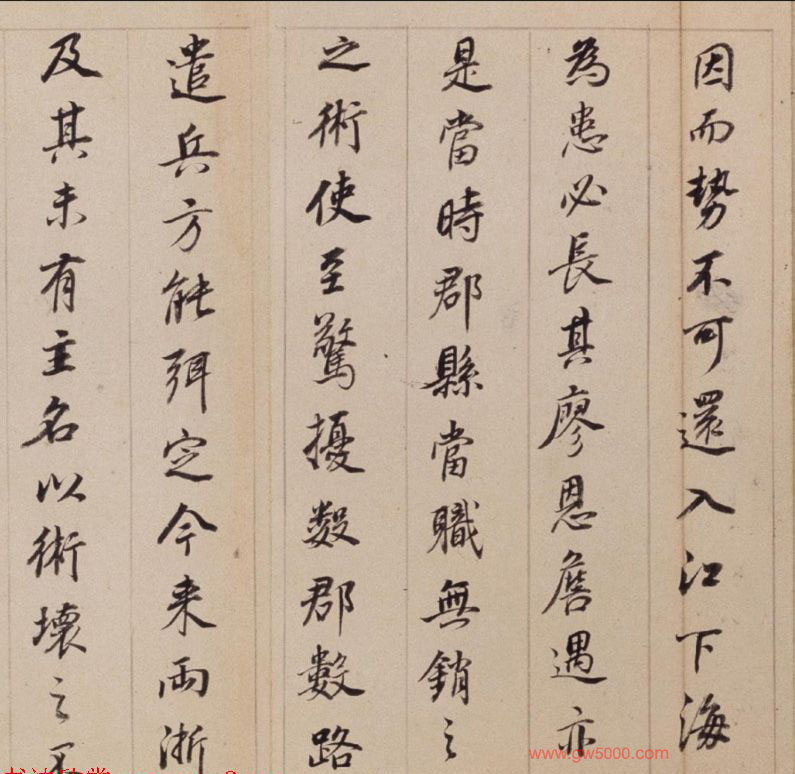 因而势不可還入江下海
為患必長其廖恩詹遇亦
是當時郡縣當職無銷之
之術使至驚擾數郡數路
遣兵方能弭定今来兩浙
及其未有主名以術壞之
www.gw5000.com